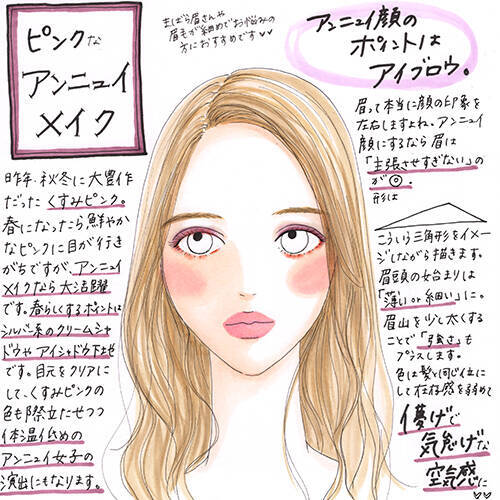 ピンクな
アンニュイ
メイク
まばら眉さんや
眉毛が細めでお悩みの
方におすすめです♥♥
アンニュイ顔の
ポイントは
アイブロウ。
眉って本当に顔の印象を
左右しますよね。アンニュイ
顔にするなら眉は
「主張させすぎない」の
が◎。
形は
こういう三角形をイメー
ジしながら描きます。
眉頭の始まりは
「薄い or 細い」に。
眉山を少し太くする
ことで「強さ」も
プラスします。
色は髪と同じ位に
して存在感を弱めて
儚げで
気怠げな
空気感に
♥♥
昨年、秋冬に大豊作
だったくすみピンク。
春になったら鮮やか
なピンクに目が行き
がちですが、アンニュイ
メイクなら大活躍
です。春らしくするポイントは
シルバー系のクリームシャ
ドウやアイシャドウ下地
です。目元をクリアに
して、くすみピンクの
色も際立たせつつ
体温低めの
アンニュイ女子の
演出にもなります。